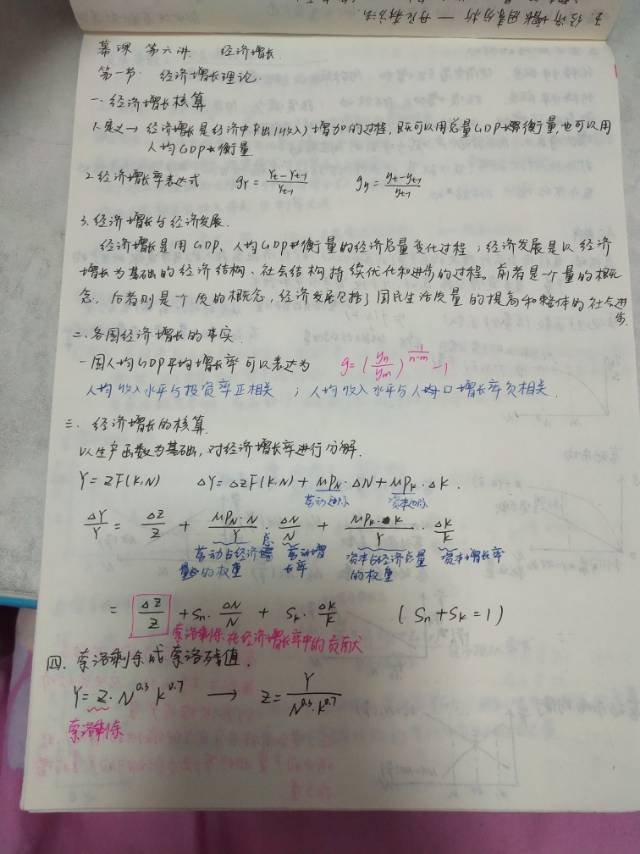 3. 经济增长因素分析
慕课 第六讲 经济增长
第一节 经济增长理论.
一. 经济增长核算
1. 定义→ 经济增长是经济中产出(收入)增加的过程, 既可以用总量GDP来衡量, 也可以用
人均GDP来衡量
2. 经济增长率表达式 gY = (Yt-Yt-1)/Yt-1 gy = (yt-yt-1)/yt-1
3. 经济增长与经济发展.
经济增长是用GDP、人均GDP来衡量的经济总量变化过程; 经济发展是以经济
增长为基础的经济结构、社会结构持续优化和进步的过程。前者是一个量的概
念, 后者则是一个质的概念, 经济发展包括了国民生活质量的提高和整体的社会进
步.
二. 各国经济增长的事实.
一国人均GDP平均增长率可以表达为 g = (yn/ym)^(1/(n-m)) - 1
人均收入水平与投资率正相关 ; 人均收入水平与人口增长率负相关.
三. 经济增长的核算.
以生产函数为基础, 对经济增长率进行分解.
Y = ZF(K,N) ΔY = ΔZF(K,N) + MPN·ΔN + MPK·ΔK.
劳动边际 资本边际
ΔY/Y = ΔZ/Z + (MPN·N)/Y · ΔN/N + (MPK·K)/Y · ΔK/K
劳动占经济总量的权重 劳动增长率 资本占经济总量的权重 资本增长率
= ΔZ/Z + Sn·ΔN/N + Sk·ΔK/K (Sn+Sk=1)
索洛剩余在经济增长率中的贡献
四. 索洛剩余或索洛残值.
Y = Z·N^0.3 K^0.7 → Z = Y/(N^0.3·K^0.7)
索洛剩余